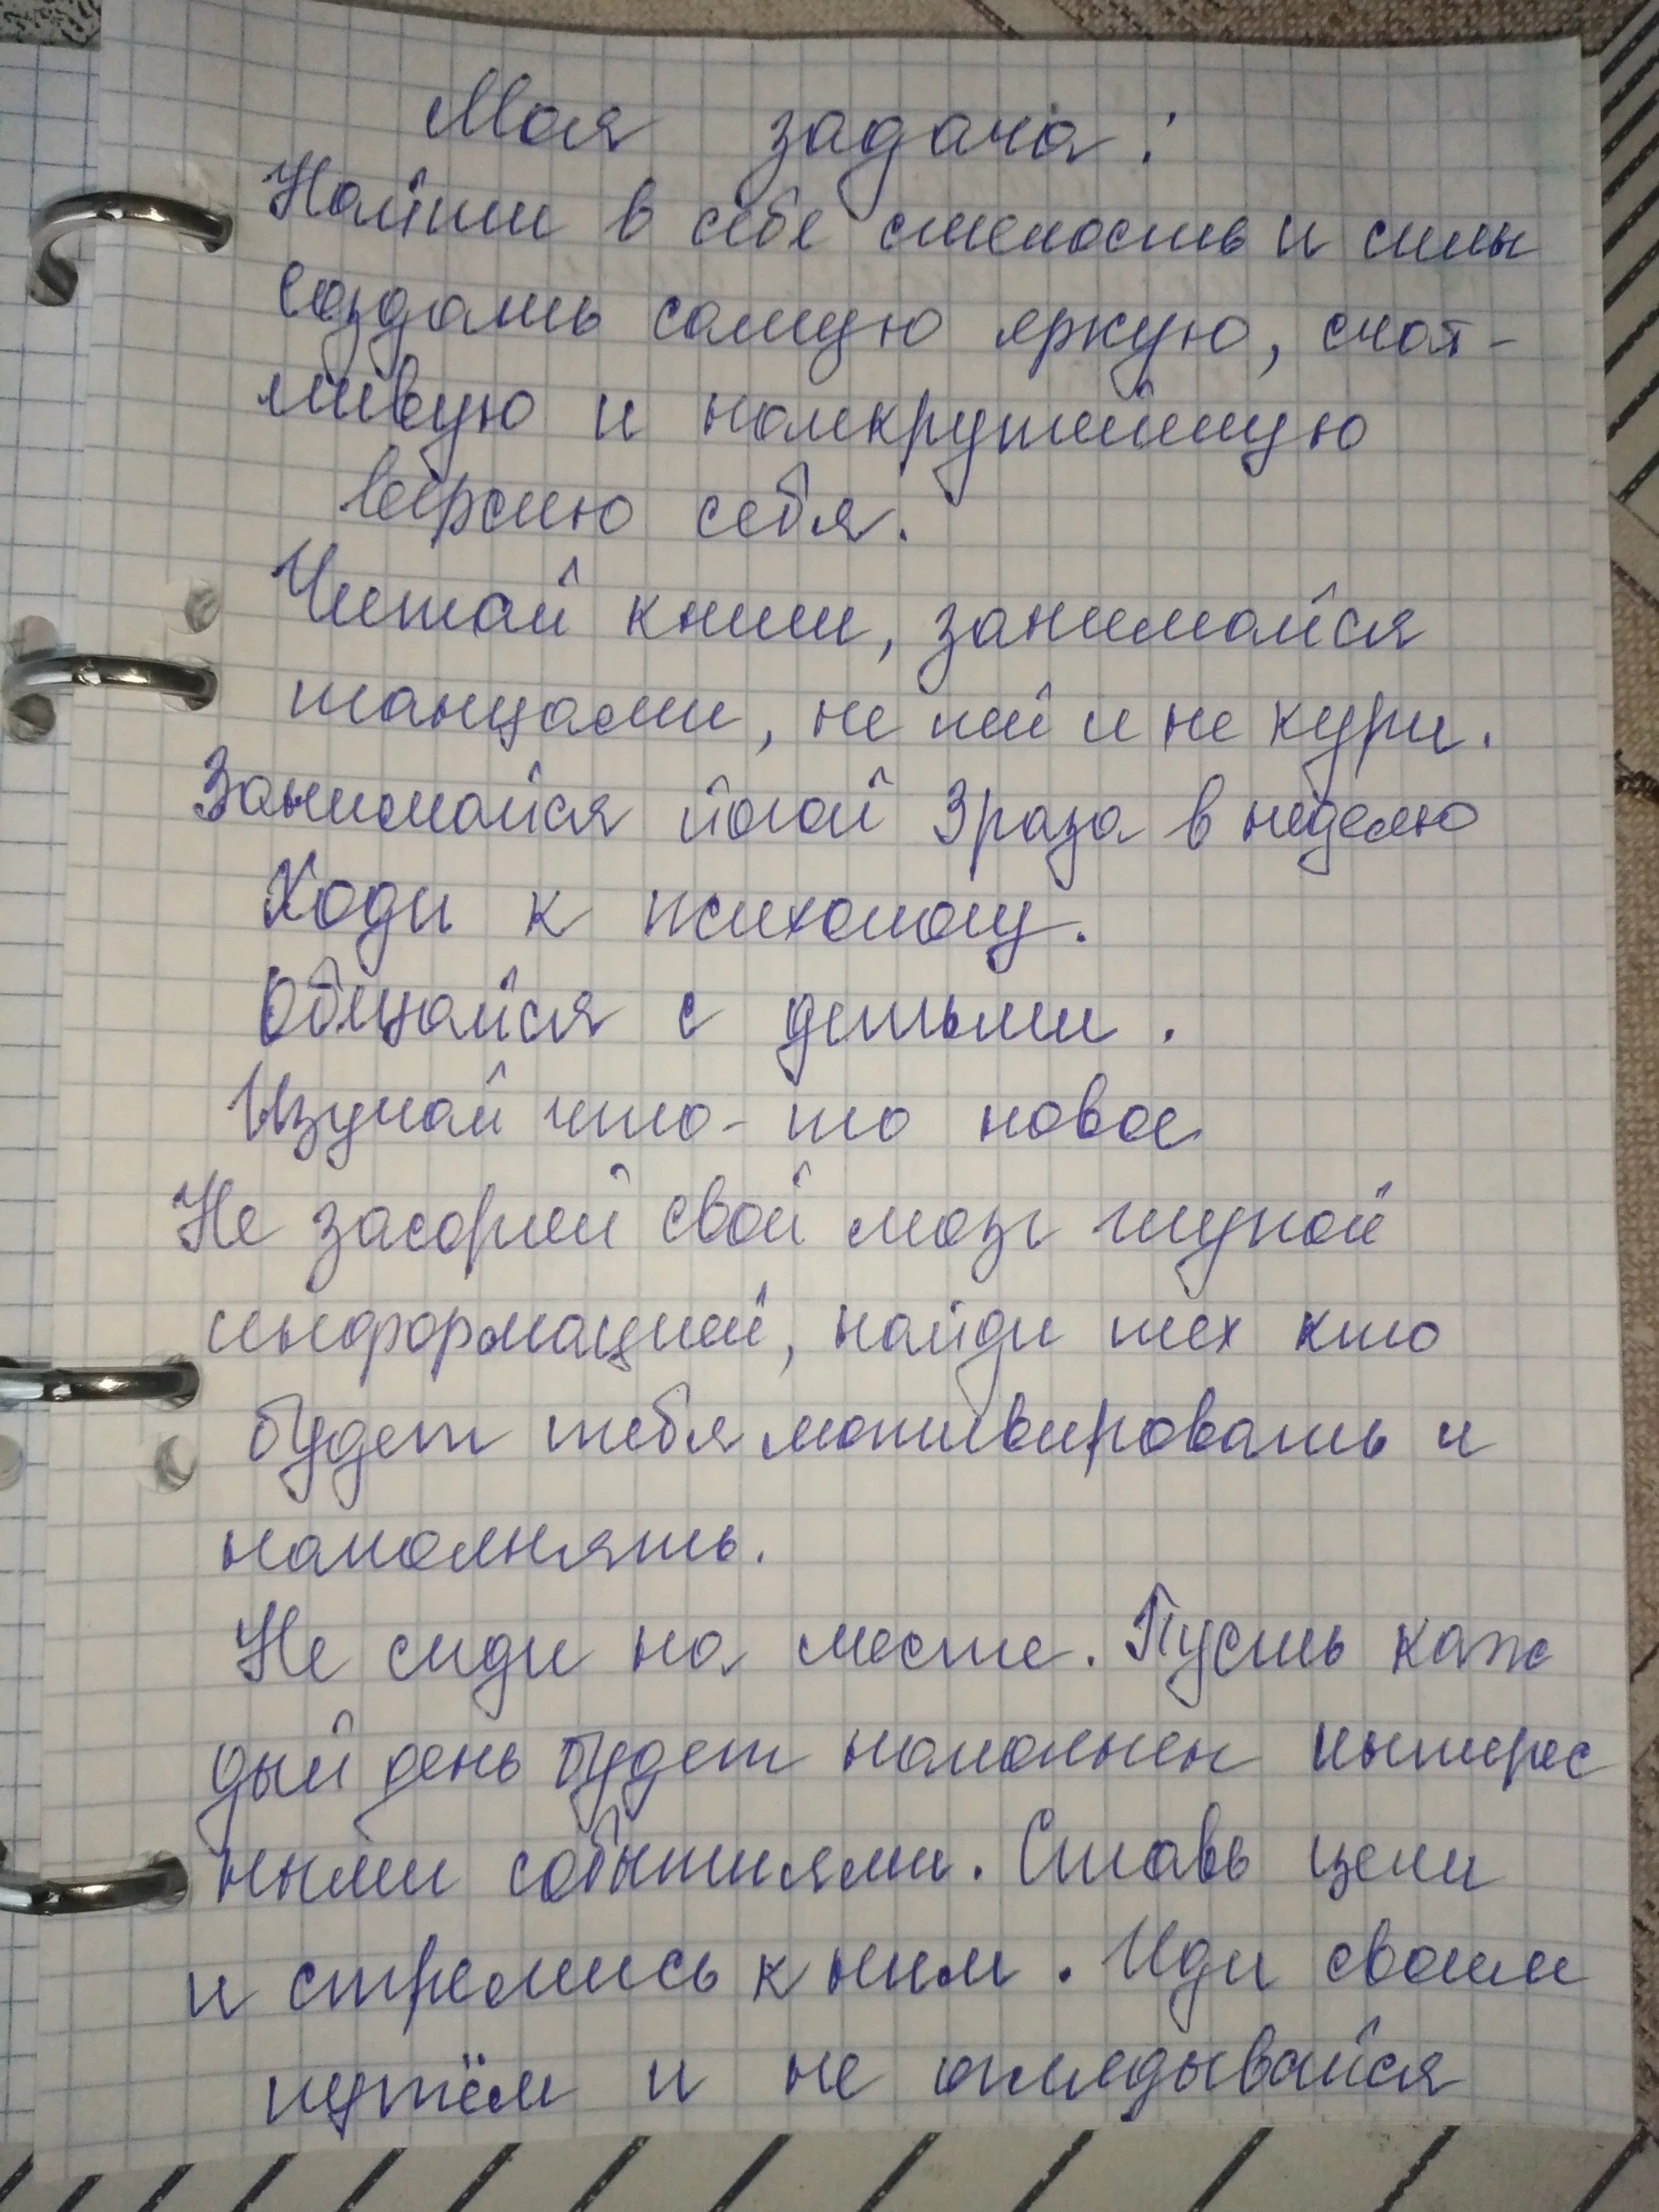 Моя задача:
Найти в себе смелость и силы
создать самую яркую, счаст-
ливую и наикрутейшую
версию себя.
Читай книги, занимайся
танцами, не пей и не кури.
Занимайся йогой 3 раза в неделю
Ходи к психологу.
Общайся с детьми.
Изучай что-то новое
Не засоряй свой мозг глупой
информацией, найди тех кто
будет тебя мотивировать и
наполнять.
Не сиди на месте. Пусть каж
дый день будет наполнен интерес
ными событиями. Ставь цели
и стремись к ним. Иди своим
путём и не оглядывайся